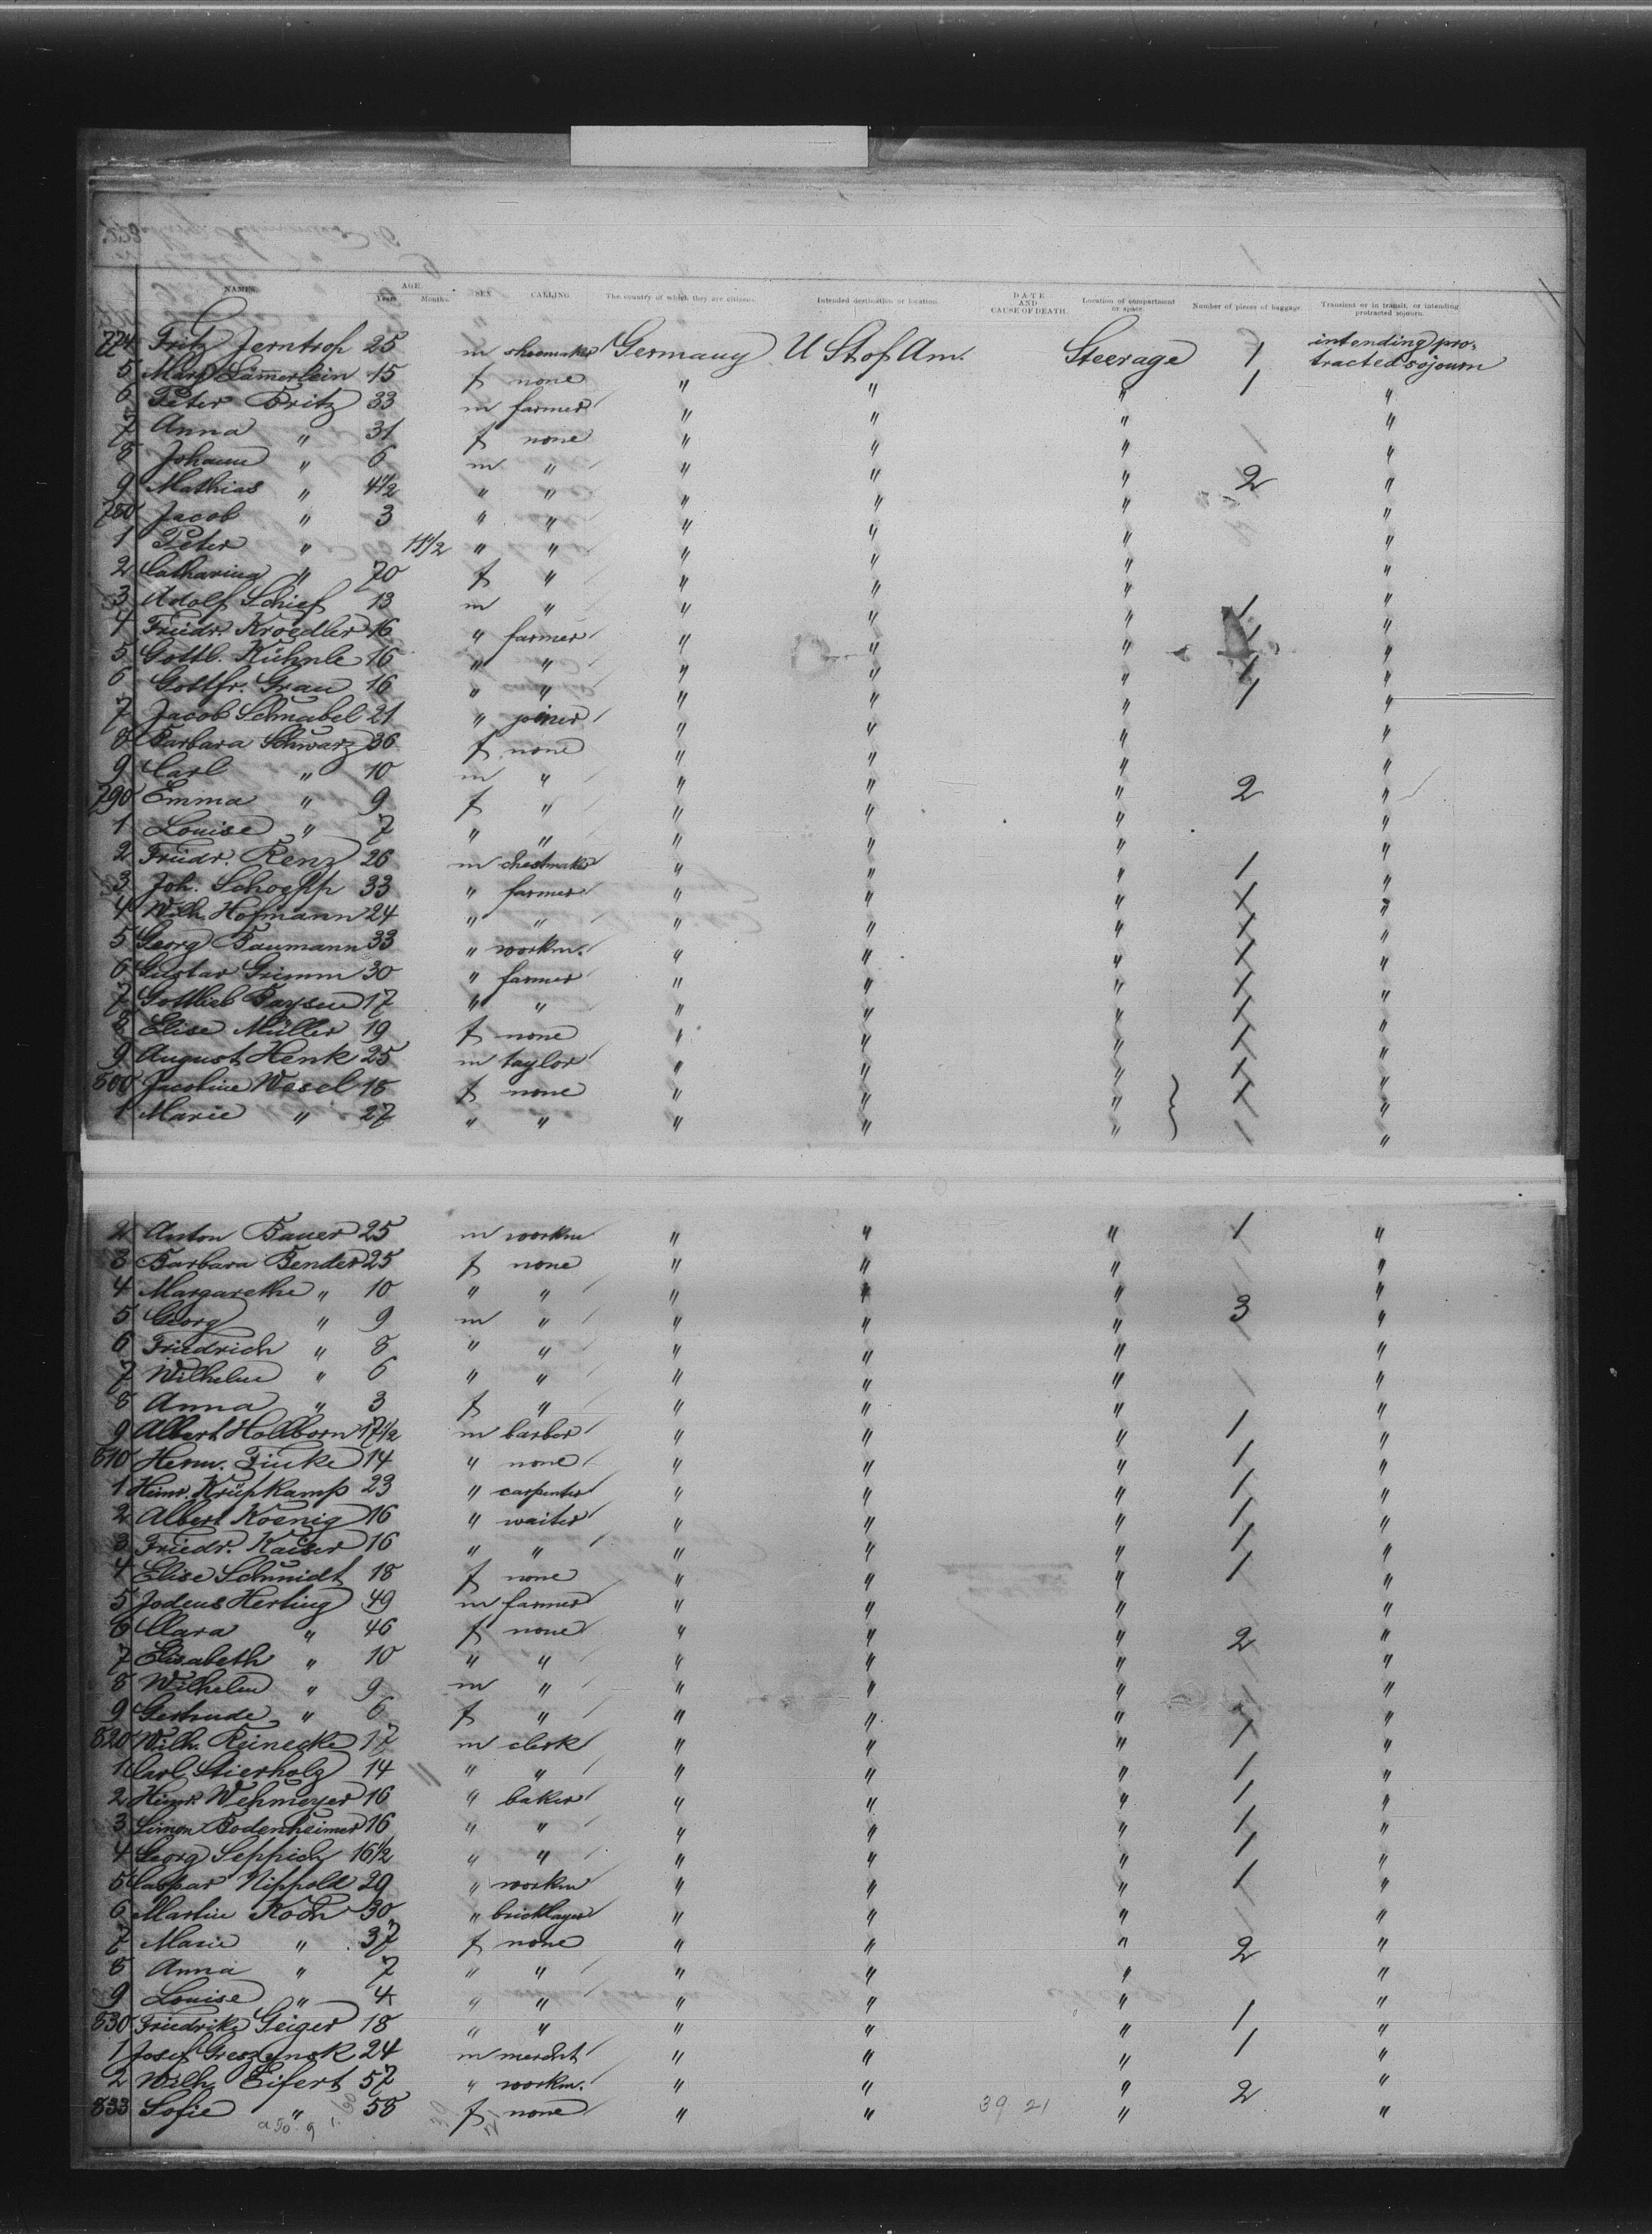 NAMES. AGE. Years. Months. SEX. CALLING. The country of which they are citizens. Intended destination or location. DATE AND CAUSE OF DEATH. Location of compartment or space. Number of pieces of baggage. Transient or in transit, or intending protracted sojourn.
774 Fritz Jerntrop 25 m shoemaker Germany U St of Am. Steerage 1 intending pro-
tracted sojourn
5 Marg. Lämmerlein 15 f none " " " 1 "
6 Peter Britz 33 m farmer " " " "
7 Anna " 31 f none " " " "
8 Johann " 6 m " " " " 2 "
9 Mathias " 4 1/2 " " " " " "
780 Jacob " 3 " " " " " "
1 Peter " 11 1/2 " " " " " "
2 Catharina " 70 f " " " " "
3 Adolf Schief 13 m " " " " 1 "
4 Friedr. Kroedler 16 " farmer " " " 1 "
5 Gottl. Kühnle 16 " " " " " 1 "
6 Gottfr. Grau 16 " " " " " 1 "
7 Jacob Schnabel 21 " joiner " " " "
8 Barbara Schwarz 36 f none " " " "
9 Carl " 10 m " " " " "
790 Emma " 9 f " " " " 2 "
1 Louise " 7 " " " " " "
2 Friedr. Renz 26 m chestmaker " " " 1 "
3 Joh. Schoepp 33 " farmer " " " 1 "
4 Wilh. Hofmann 24 " " " " " 1 "
5 Georg Baumann 33 " workm. " " " 1 "
6 Gustav Grimm 30 " farmer " " " 1 "
7 Gottlieb Baysen 17 " " " " " 1 "
8 Elise Müller 19 f none " " " 1 "
9 August Henk 25 m taylor " " " 1 "
800 Jacobine Wesel 18 f none " " " 1 "
1 Marie " 27 " " " " " "
2 Anton Bauer 25 m workm " " " 1 "
3 Barbara Bender 25 f none " " " "
4 Margarethe " 10 " " " " " "
5 Georg " 9 m " " " " 3 "
6 Friedrich " 8 " " " " " "
7 Wilhelm " 6 " " " " " "
8 Anna " 3 f " " " " "
9 Albert Hollborn 17 1/2 m barber " " " 1 "
810 Herm. Finke 14 " none " " " 1 "
1 Heinr. Krüpkamp 23 " carpenter " " " 1 "
2 Albert Koenig 16 " waiter " " " 1 "
3 Friedr. Kaiser 16 " " " " " 1 "
4 Elise Schmidt 18 f none " " " 1 "
5 Jodeus Herting 49 m farmer " " " "
6 Clara " 46 f none " " " 2 "
7 Elisabeth " 10 " " " " " "
8 Wilhelm " 9 m " " " " "
9 Gertrude " 6 f " " " " "
820 Wilh. Reinecke 17 m clerk " " " 1 "
1 Carl Stierholz 14 " " " " " 1 "
2 Heinr. Wehmeyer 16 " baker " " " 1 "
3 Simon Bodenheimer 16 " " " " " 1 "
4 Georg Seppich 16 1/2 " " " " " 1 "
5 Caspar Nippold 29 " workm " " " 1 "
6 Martin Koch 30 " bricklayer " " " "
7 Marie " 37 f none " " " 2 "
8 Anna " 7 " " " " " "
9 Louise " 4 " " " " " "
830 Friedrike Geiger 18 " " " " " 1 "
1 Josef Greszynsk 24 m mercht " " " 1 "
2 Wilh. Eifert 57 " workm. " " " 2 "
833 Sofie " 58 f none " " 39 21 " "